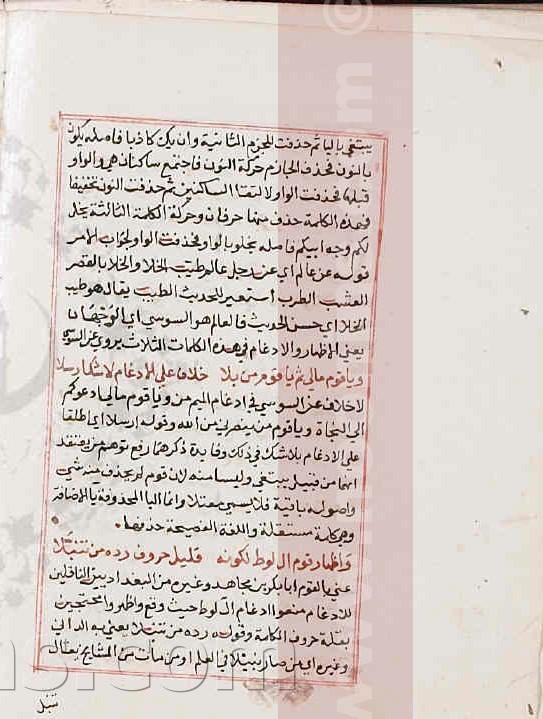 يبتغي بالياء ثم حذفت للجزم الثانية وان يك كاذبا فاصله يكون
بالنون فحذف الجازم حركة النون فاجتمع ساكنان هي والواو
قبلها فحذفت الواو لالتقا الساكنين ثم حذفت النون تخفيفا
فهذه الكلمة حذف منها حرفان وحركة الكلمة الثالثة يخل
لكم وجه ابيكم فاصله يخلو بالواو فحذفت الواو لجواب الامر
قوله عن عالم اي عن رجل عالم طيب الخلا والخلا بالقصر
العشب الطرب استعير للحديث الطيب يقال هو طيب
الخلا اي حسن الحديث فالعالم هو السوسي اي الوجهان
يعني الاظهار والادغام في هذه الكلمات الثلاث يروي عن السوسي
ويا قوم مالي ثم يا قوم من بلا خلاف على الادغام لا شك ارسلا
لا خلاف عن السوسي في ادغام الميم من ويا قوم مالي ادعوكم
الي النجاة ويا قوم من ينصرني من الله وقوله ارسلا اي اطلقا
على الادغام بلا شك في ذلك وفايدة ذكرهما رفع توهم من يعتقد
انهما من قبيل يبتغي وليسا منه لان قوم لم يحذف منه شي
واصوله باقية فلا يسمي معتلا وانما اليا المحذوفة يا الاضافة
وهي كلمة مستقلة واللغة الفصيحة حذفها
واظهار قوم ال لوط لكونه قليل حروف رده من تنبلا
عني بالقوم ابا بكر بن مجاهد وغيره من البغداديين الناقلين
للادغام منعوا ادغام ال لوط حيث وقع واظهروا محتجين
بقلة حروف الكلمة وقوله رده من تنبلا يعني به الداني
وغيره اي من صار نبيلا في العلم او من مات من المشايخ يقال
تنبل